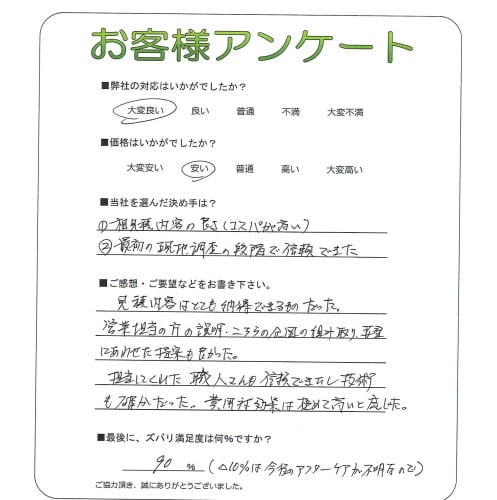 お客様アンケート
■弊社の対応はいかがでしたか？
大変良い 良い 普通 不満 大変不満
■価格はいかがでしたか？
大変安い 安い 普通 高い 大変高い
■当社を選んだ決め手は？
①相見積内容の良さ(コスパが高い)
②最初の現地調査の段階で信頼できた
■ご感想・ご要望などをお書き下さい。
見積内容はとても納得できるものだった。
営業担当の方の説明・こちらの企図の汲み取り、要望
にあわせた提案も良かった。
担当してくれた職人さんも信頼できたし技術
も確かだった。費用対効果は極めて高いと感じた。
■最後に、ズバリ満足度は何%ですか？
90 % (△10%は今後のアフターケアが不明なので)
ご協力頂き、誠にありがとうございました。